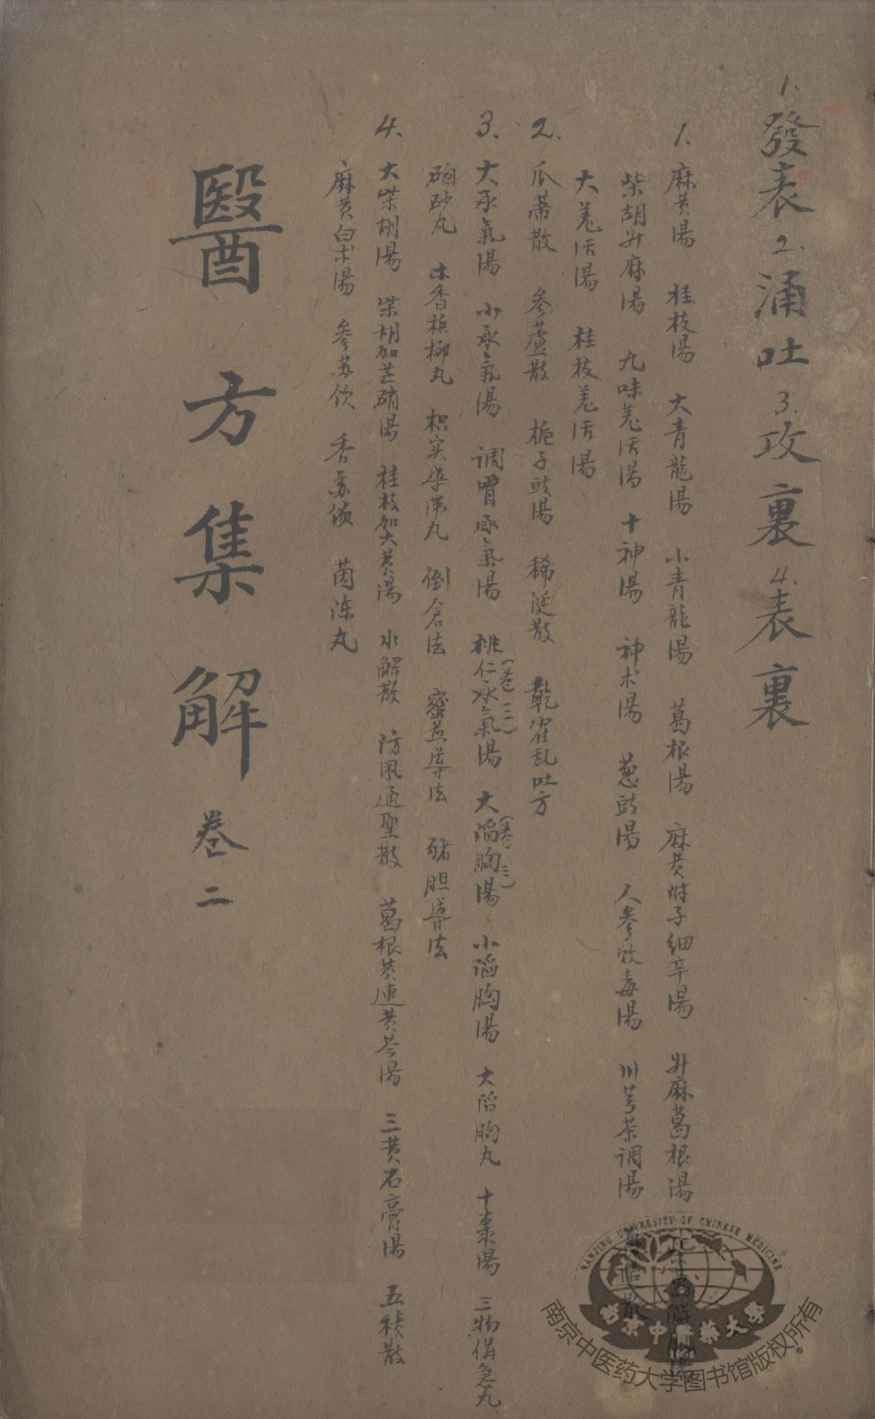 1. 發表 2. 涌吐 3. 攻裏 4. 表裏
1. 麻黄湯 桂枝湯 大青龍湯 小青龍湯 葛根湯 麻黄附子細辛湯 升麻葛根湯
柴胡升麻湯 九味羌活湯 十神湯 神术湯 葱豉湯 人參敗毒湯 川芎茶調湯
大羌活湯 桂枝羌活湯
2. 瓜蒂散 參蘆散 栀子豉湯 稀涎散 乾霍乱吐方
3. 大承氣湯 小承氣湯 调胃承氣湯 桃仁承氣湯(卷三) 大陷胸湯(卷三) 小陷胸湯 大陷胸丸 十棗湯 三物備急丸
硇砂丸 木香槟榔丸 枳实導滞丸 倒倉法 蜜煎導法 猪胆導法
4. 大柴胡湯 柴胡加芒硝湯 桂枝加大黄湯 水解散 防風通聖散 葛根黄連黄芩湯 三黄石膏湯 五积散
麻黄白术湯 參苏饮 香薷饮 茵陈丸
醫方集解 卷二
NANJING UNIVERSITY OF CHINESE MEDICINE
南京中醫藥大學
南京中医药大学图书馆版权所有